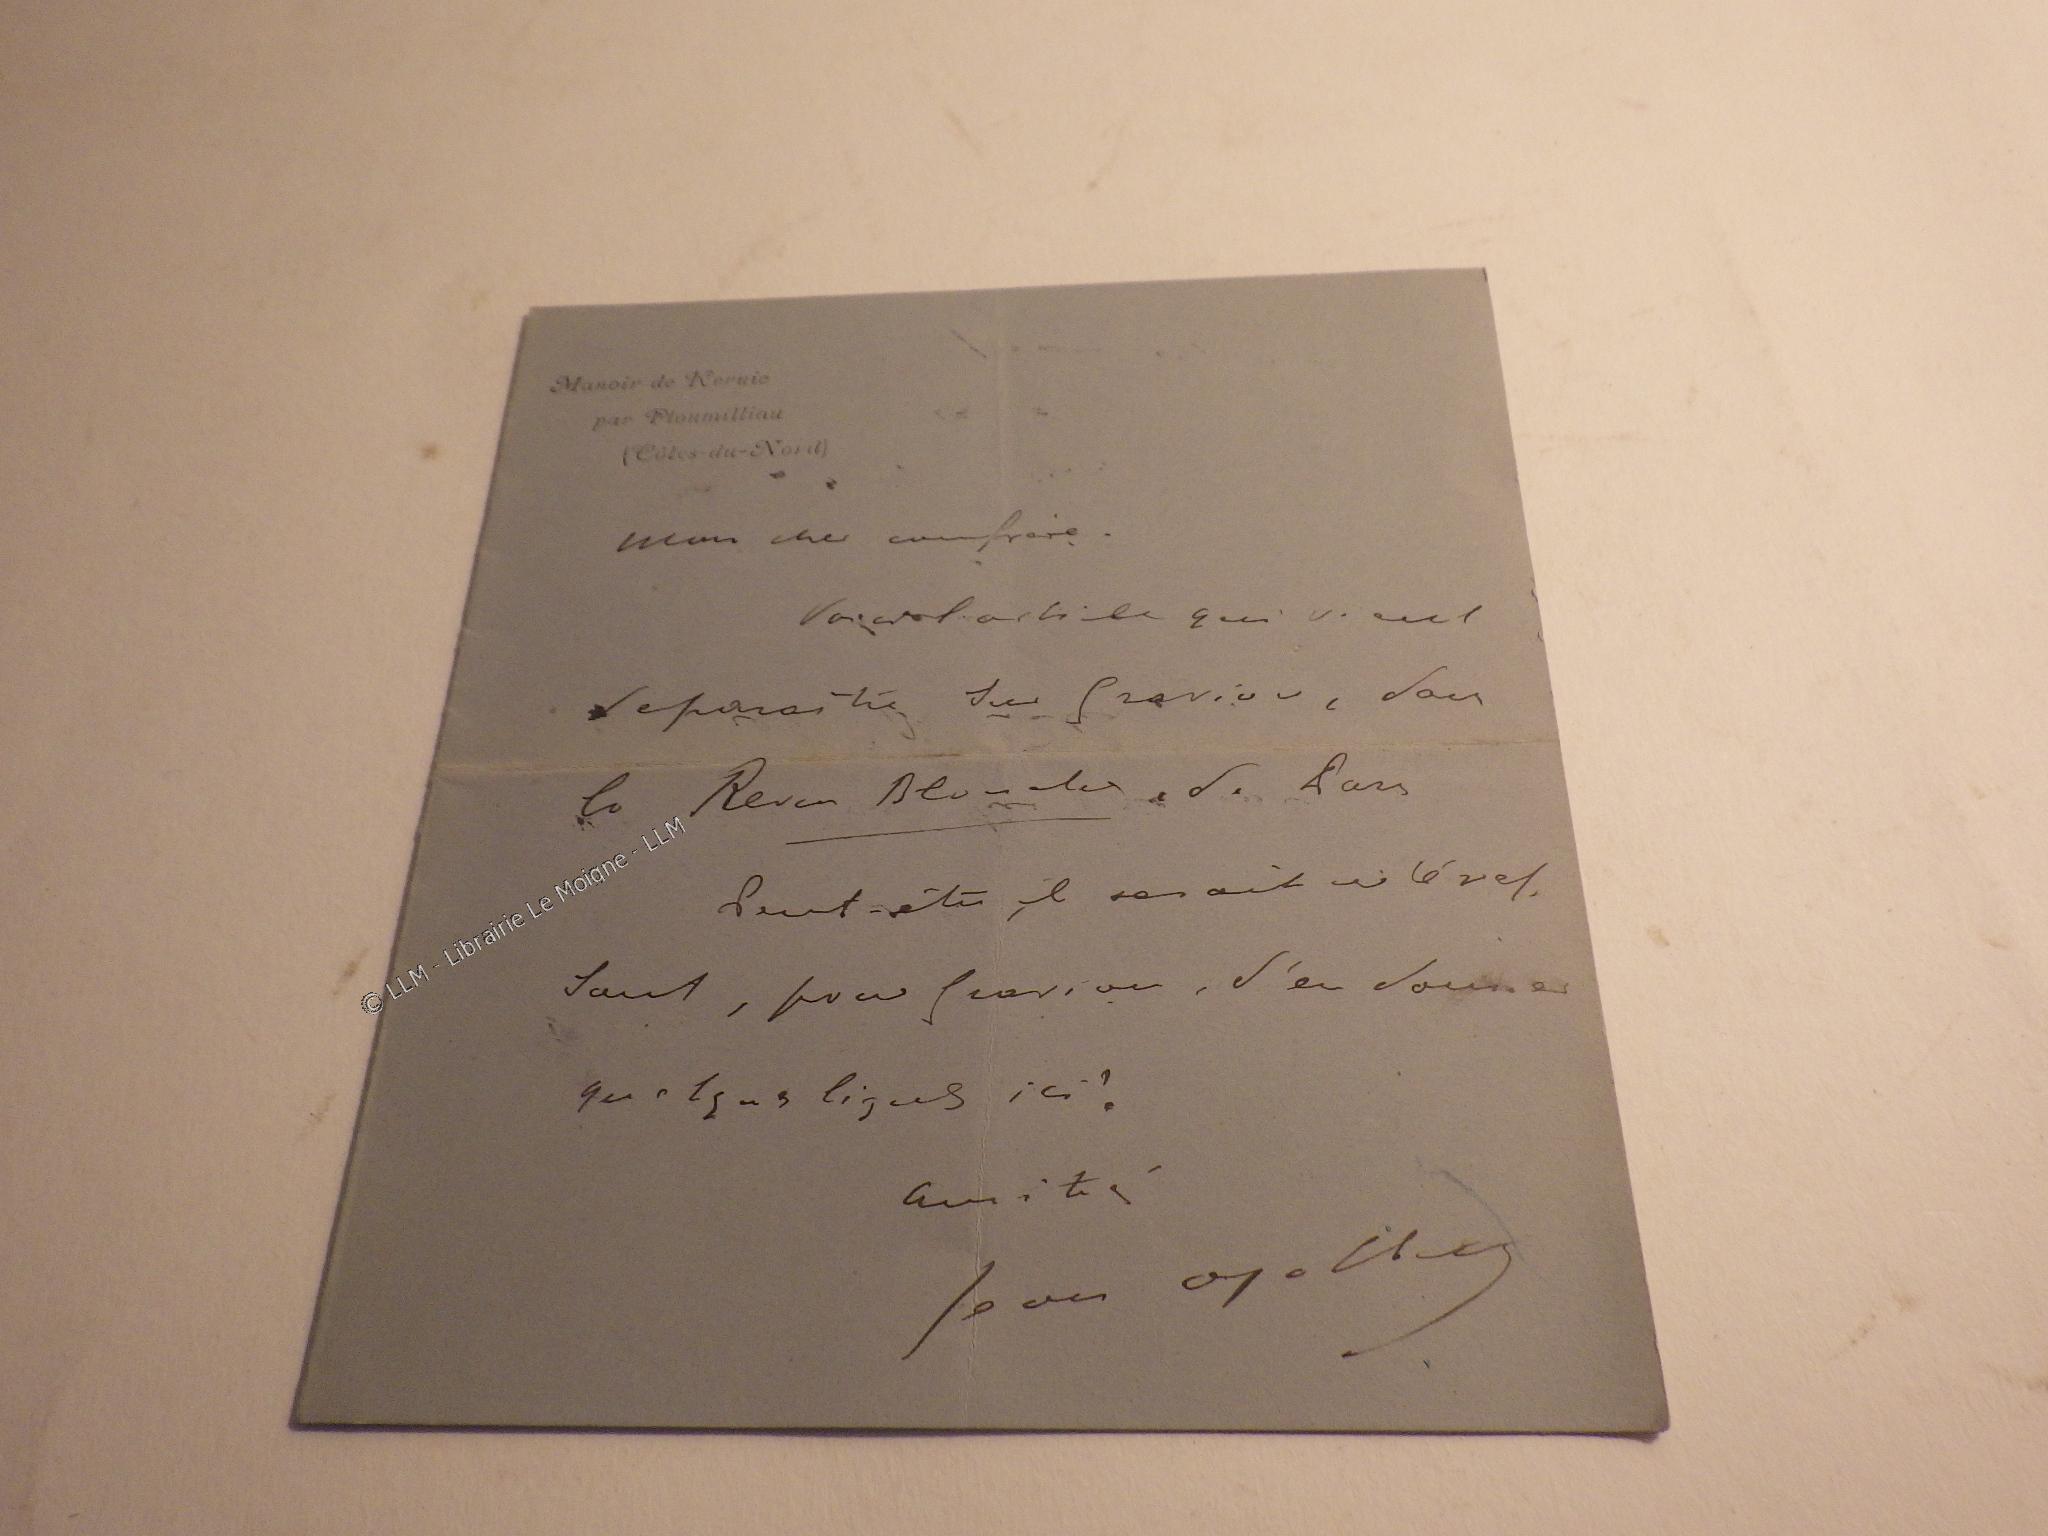 Manoir de Kernic
par Ploumilliau
(Côtes-du-Nord)
mon cher confrère.
Voici l'article qui vient
de paraître sur Graviou, dans
la Revue Blanche, de Paris
Peut-être il serait intéres.
sant, pour Graviou, d'en donner
quelques lignes ici!
amitié
Jean
© LLM - Librairie Le Moigne - LLM